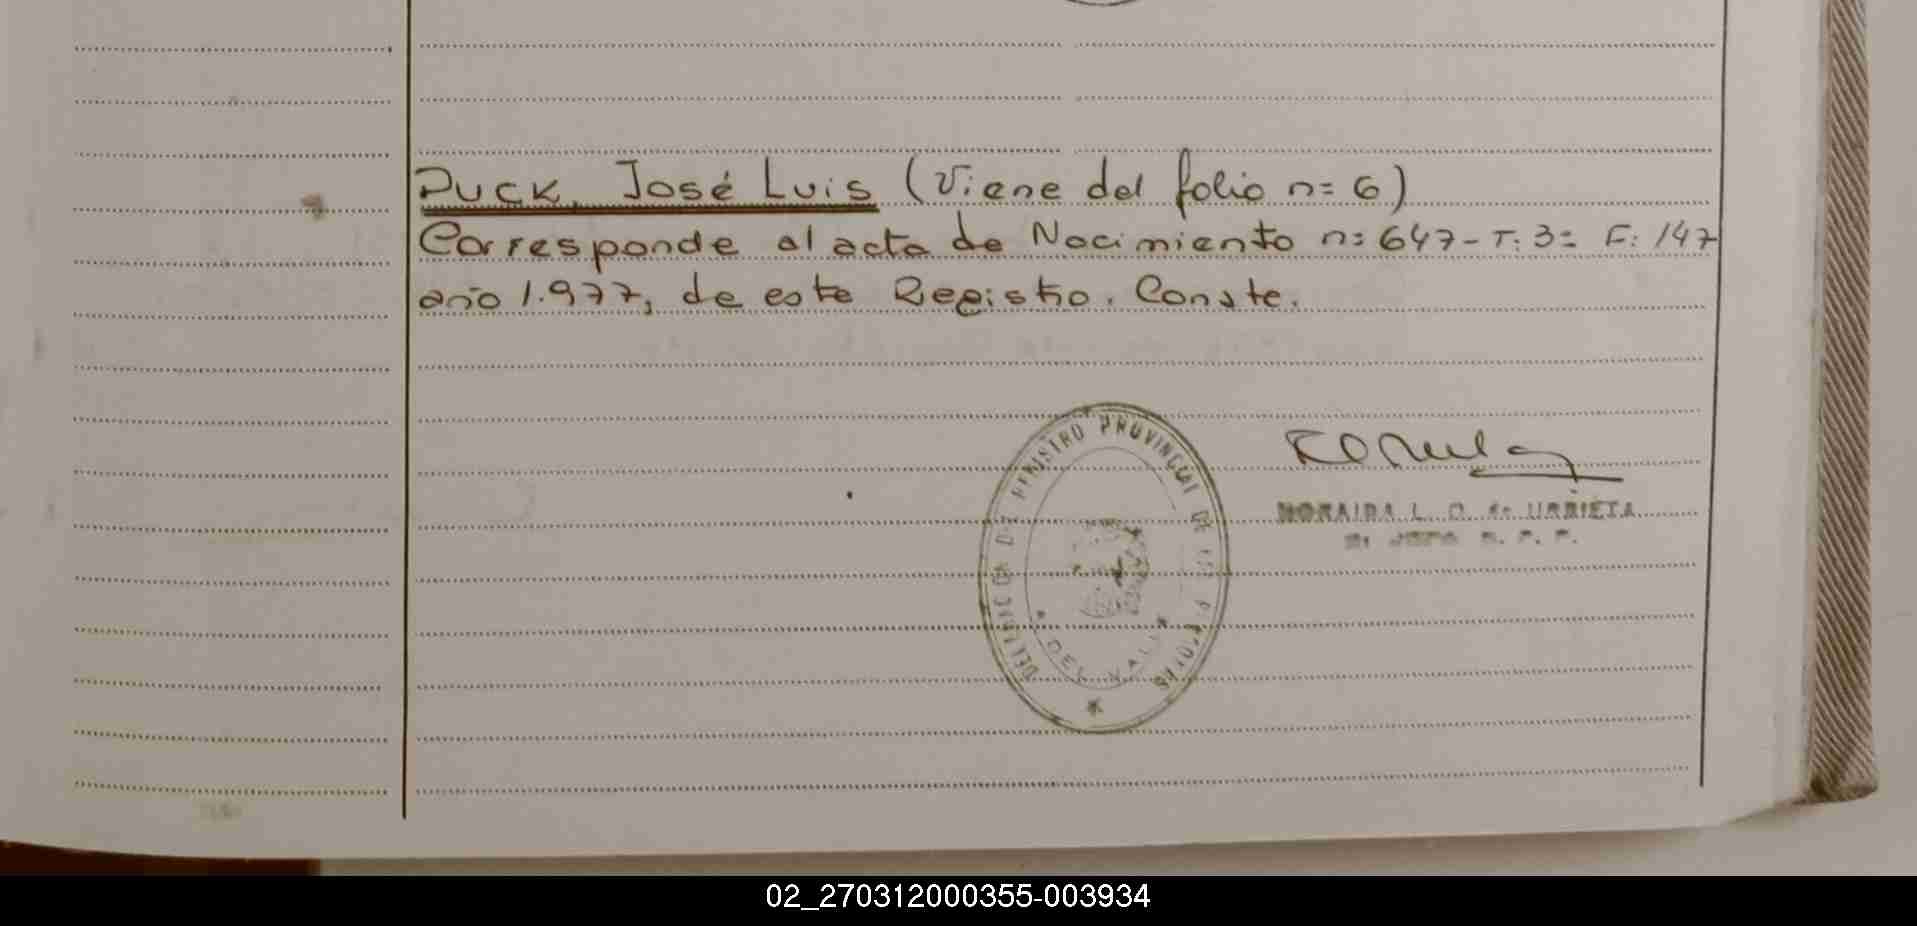 PUCK, José Luis (Viene del folio n= 6)
Corresponde al acta de Nacimiento n= 647- T: 3= F: 147
año 1.977, de este Registro. Conste.
REGISTRO PROVINCIAL DE LAS PERSONAS
DEL VALLE
NORAIDA L. O. de URRIETA
02_270312000355-003934